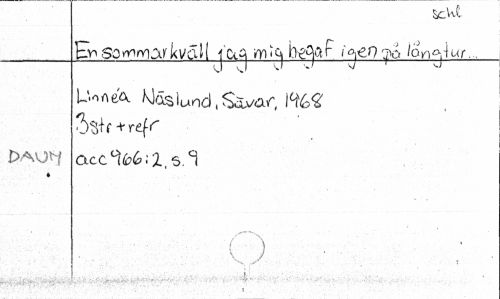 schl.
En sommarkväll jag mig begaf igen på långtur...
Linnéa Näslund, Sävar, 1968
3 str + refr
DAUM acc 966:2, s. 9